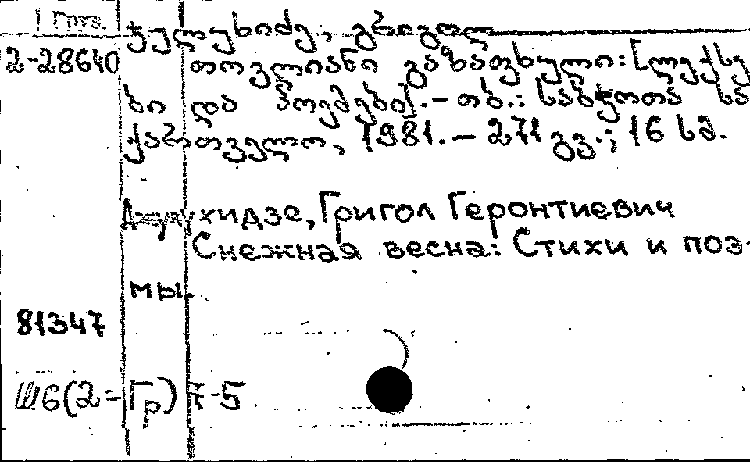 Груз.
ჯულუხიძე, გრიგოლ
2-28640 თოვლიანი გაზაფხული: [ლექსე
ბი და პოემები]. – თბ.: საბჭოთა სა
ქართველო, 1981. – 271 გვ.; 16 სმ.
Джулухидзе, Григол Геронтиевич
Снежная весна: Стихи и поэ-
мы.
81347
Ш6(2=Гр)7-5